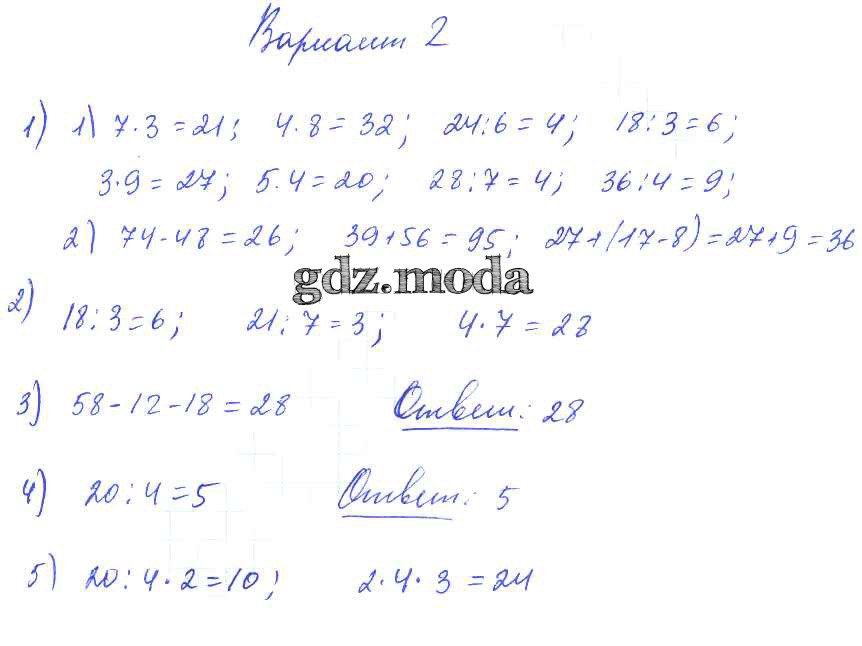 Вариант 2
1) 1) 7·3=21; 4·8=32; 24:6=4; 18:3=6;
3·9=27; 5·4=20; 28:7=4; 36:4=9;
2) 74-48=26; 39+56=95; 27+(17-8)=27+9=36
gdz.moda
2) 18:3=6; 21:7=3; 4·7=28
3) 58-12-18=28 Ответ: 28
4) 20:4=5 Ответ: 5
5) 20:4·2=10; 2·4·3=24